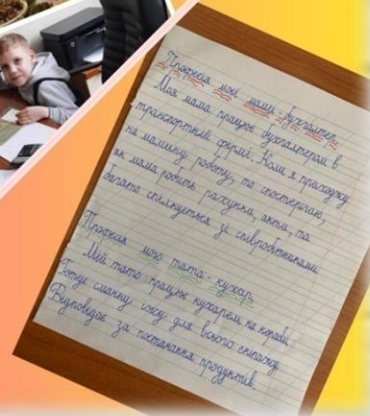 Професія моєї мами - бухгалтер.
Моя мама працює бухгалтером в
транспортній фірмі. Коли я приходжу
на мамину роботу, то спостерігаю,
як мама робить рахунки, акти, та
багато спілкується зі співробітниками
Професія мого тата - кухар.
Мій тато працює кухарем на кораблі.
Готує смачну їжу для всього екіпажу.
Відповідає за постачання продуктів.